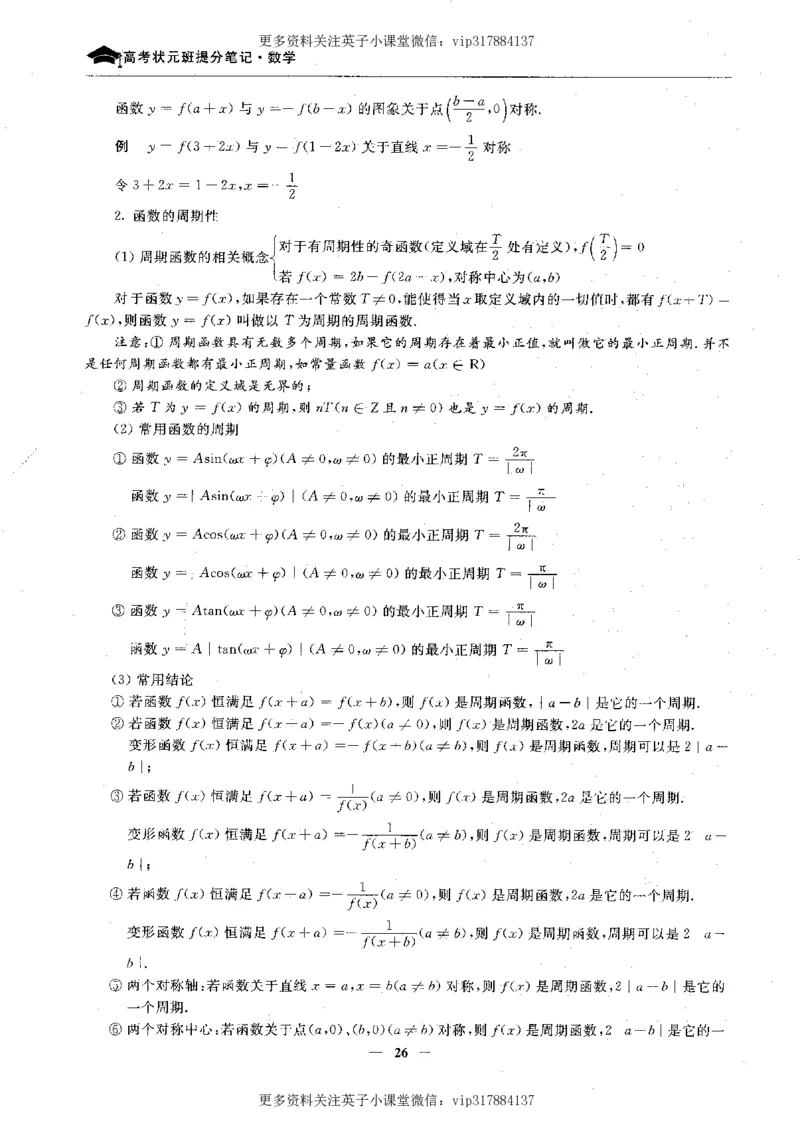 更多资料关注英子小课堂微信：vip317884137
高考状元班提分笔记·数学
函数 y = f(a+x) 与 y = -f(b-x) 的图象关于点((b-a)/2,0)对称.
例 y = f(3+2x) 与 y = f(1-2x) 关于直线 x = -1/2 对称
令 3+2x = 1-2x,x = -1/2
2. 函数的周期性
(1) 周期函数的相关概念{对于有周期性的奇函数(定义域在 T/2 处有定义),f(T/2) = 0
若 f(x) = 2b-f(2a-x),对称中心为(a,b)
对于函数 y = f(x),如果存在一个常数 T≠0,能使得当 x 取定义域内的一切值时,都有 f(x+T) =
f(x),则函数 y = f(x) 叫做以 T 为周期的周期函数.
注意:① 周期函数具有无数多个周期,如果它的周期存在着最小正值,就叫做它的最小正周期.并不
是任何周期函数都有最小正周期,如常量函数 f(x) = a(x∈R)
② 周期函数的定义域是无界的;
③ 若 T 为 y = f(x) 的周期,则 nT(n∈Z 且 n≠0) 也是 y = f(x) 的周期.
(2) 常用函数的周期
① 函数 y = Asin(ωx+φ)(A≠0,ω≠0) 的最小正周期 T = 2π/|ω|
函数 y =| Asin(ωx+φ) | (A≠0,ω≠0) 的最小正周期 T = π/|ω
② 函数 y = Acos(ωx+φ)(A≠0,ω≠0) 的最小正周期 T = 2π/|ω|
函数 y =| Acos(ωx+φ) | (A≠0,ω≠0) 的最小正周期 T = π/|ω|
③ 函数 y = Atan(ωx+φ)(A≠0,ω≠0) 的最小正周期 T = π/|ω|
函数 y = A | tan(ωx+φ) | (A≠0,ω≠0) 的最小正周期 T = π/|ω|
(3) 常用结论
① 若函数 f(x) 恒满足 f(x+a) = f(x+b),则 f(x) 是周期函数,| a-b | 是它的一个周期.
② 若函数 f(x) 恒满足 f(x+a) =-f(x)(a≠0),则 f(x) 是周期函数,2a 是它的一个周期.
变形函数 f(x) 恒满足 f(x+a) =-f(x+b)(a≠b),则 f(x) 是周期函数,周期可以是 2 | a-
b |;
③ 若函数 f(x) 恒满足 f(x+a) = 1/f(x)(a≠0),则 f(x) 是周期函数,2a 是它的一个周期.
变形函数 f(x) 恒满足 f(x+a) =-1/f(x+b)(a≠b),则 f(x) 是周期函数,周期可以是 2 a-
b |;
④ 若函数 f(x) 恒满足 f(x-a) =-1/f(x)(a≠0),则 f(x) 是周期函数,2a 是它的一个周期.
变形函数 f(x) 恒满足 f(x+a) =-1/f(x+b)(a≠b),则 f(x) 是周期函数,周期可以是 2 a-
b |.
⑤ 两个对称轴:若函数关于直线 x = a,x = b(a≠b) 对称,则 f(x) 是周期函数,2 | a-b | 是它的
一个周期.
⑥ 两个对称中心:若函数关于点(a,0)、(b,0)(a≠b) 对称,则 f(x) 是周期函数,2 a-b | 是它的一
— 26 —
更多资料关注英子小课堂微信：vip317884137